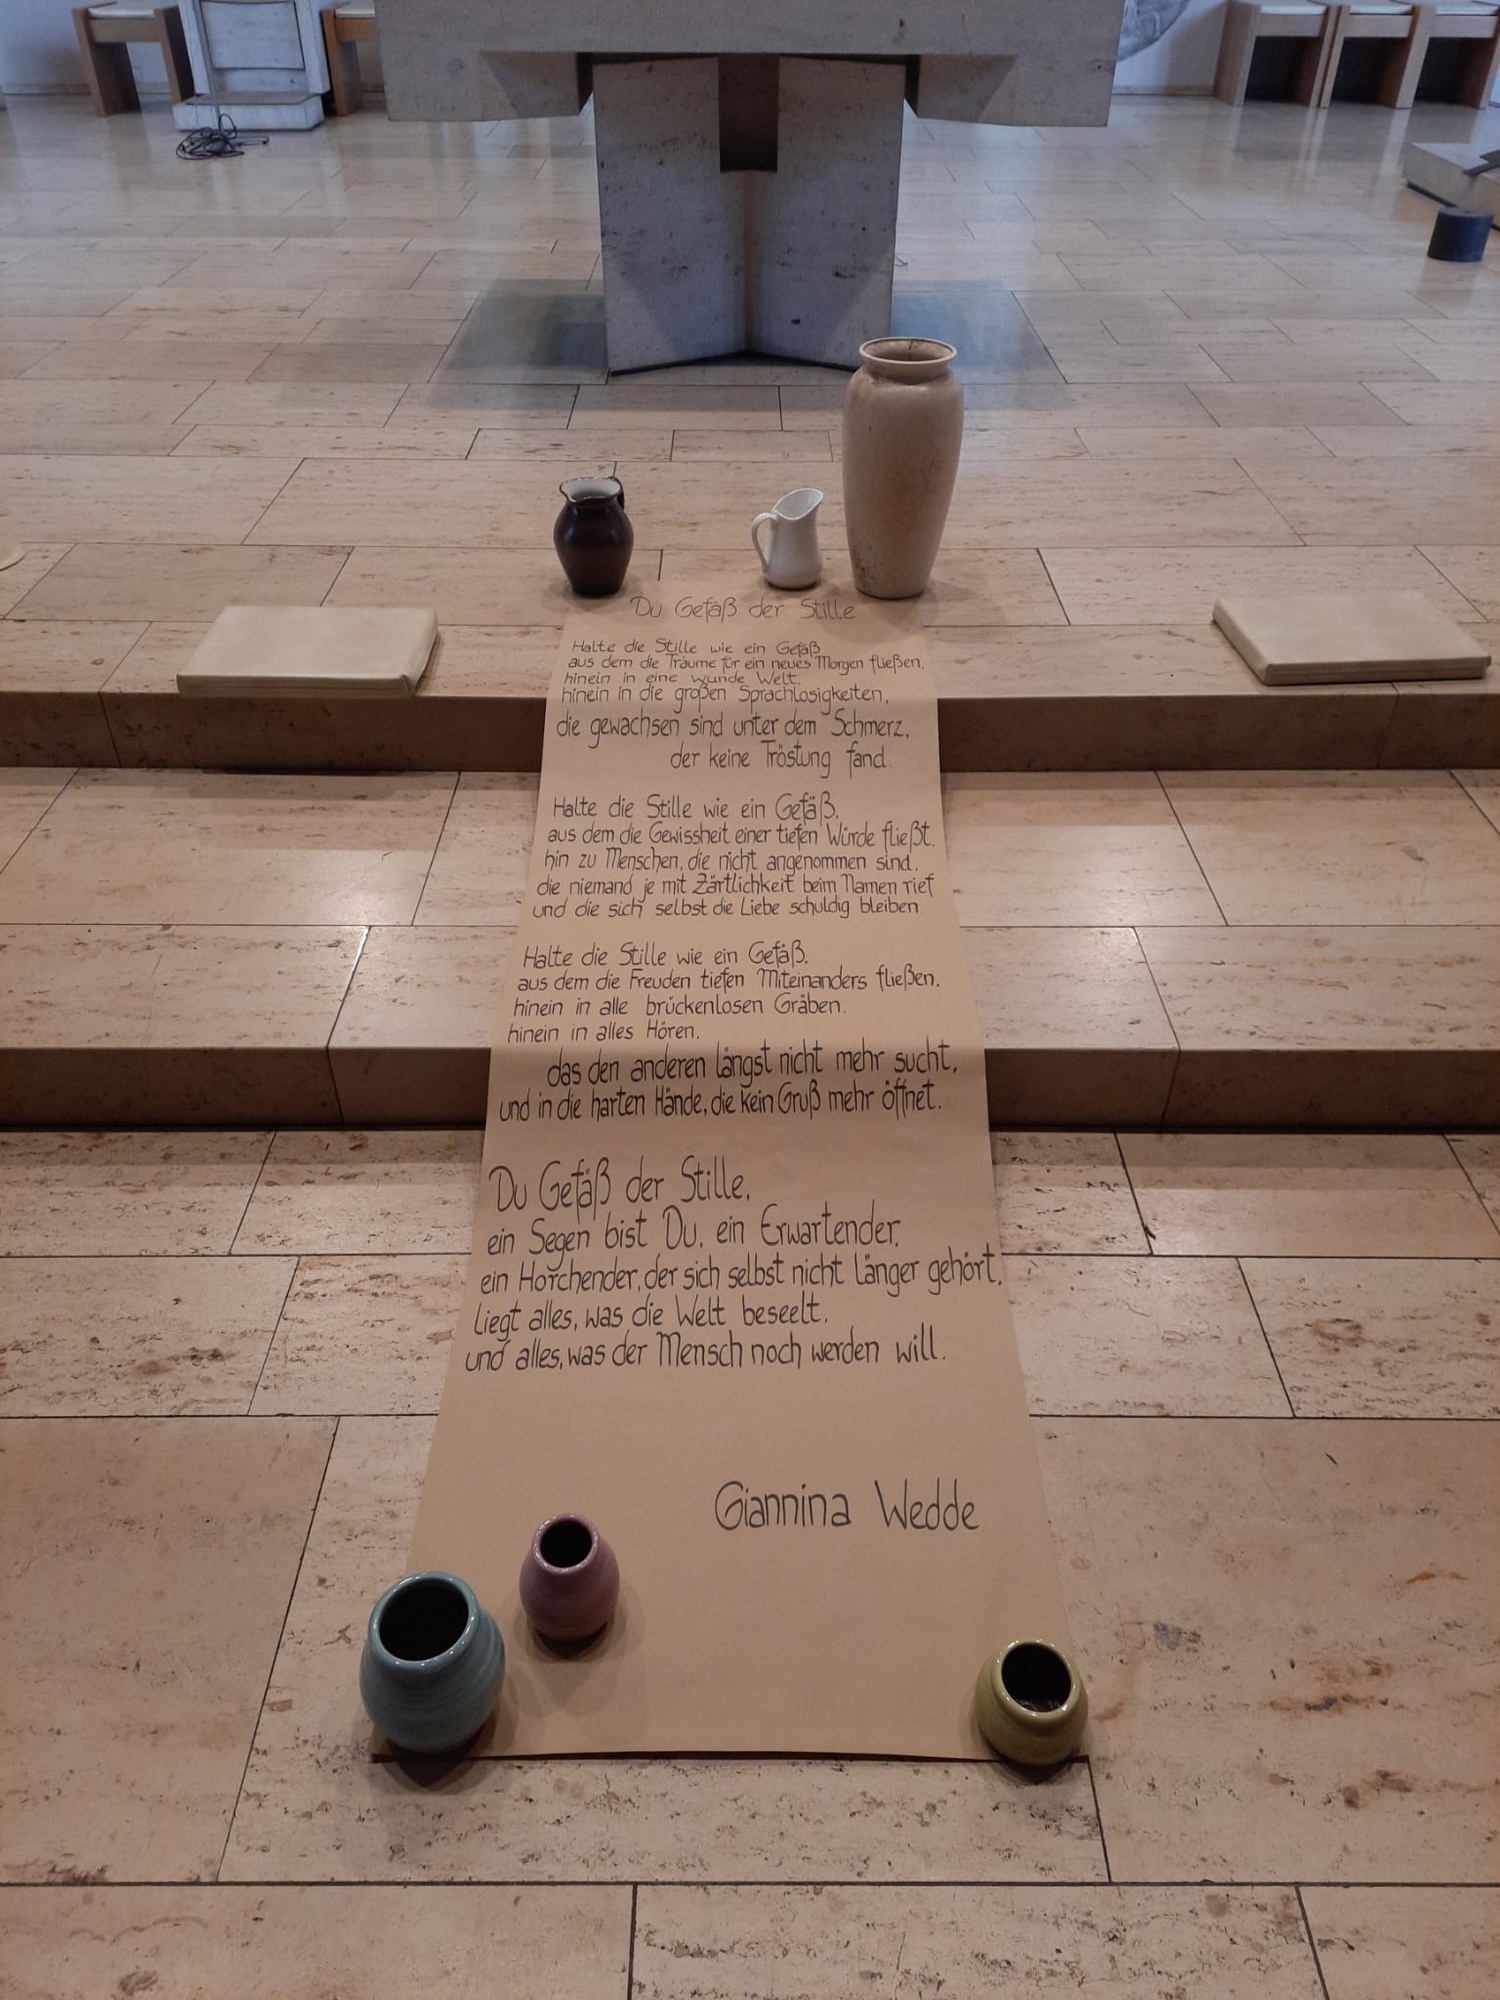 Du Gefäß der Stille
Halte die Stille wie ein Gefäß
aus dem die Träume für ein neues Morgen fließen.
hinein in eine wunde Welt.
hinein in die großen Sprachlosigkeiten,
die gewachsen sind unter dem Schmerz,
der keine Tröstung fand.
Halte die Stille wie ein Gefäß.
aus dem die Gewissheit einer tiefen Würde fließt.
hin zu Menschen, die nicht angenommen sind.
die niemand je mit Zärtlichkeit beim Namen rief
und die sich selbst die Liebe schuldig bleiben.
Halte die Stille wie ein Gefäß.
aus dem die Freuden tiefen Miteinanders fließen.
hinein in alle brückenlosen Gräben.
hinein in alles Hören.
das den anderen längst nicht mehr sucht,
und in die harten Hände, die kein Gruß mehr öffnet.
Du Gefäß der Stille.
ein Segen bist Du, ein Erwartender,
ein Horchender, der sich selbst nicht länger gehört.
liegt alles, was die Welt beseelt.
und alles, was der Mensch noch werden will.
Giannina Wedde